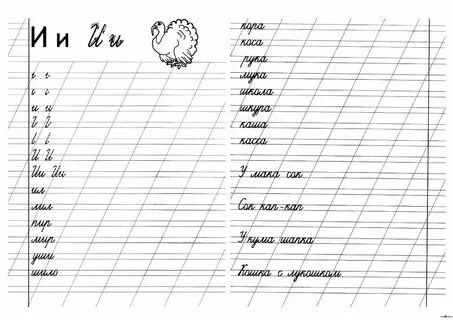 И и И и
и и
Ии Ии
ил
мил
пир
мир
уши
шило
кора
коса
рука
мука
школа
шкура
каша
касса
У мака сок
Сок кап-кап
У кума шапка
Кошка с лукошком